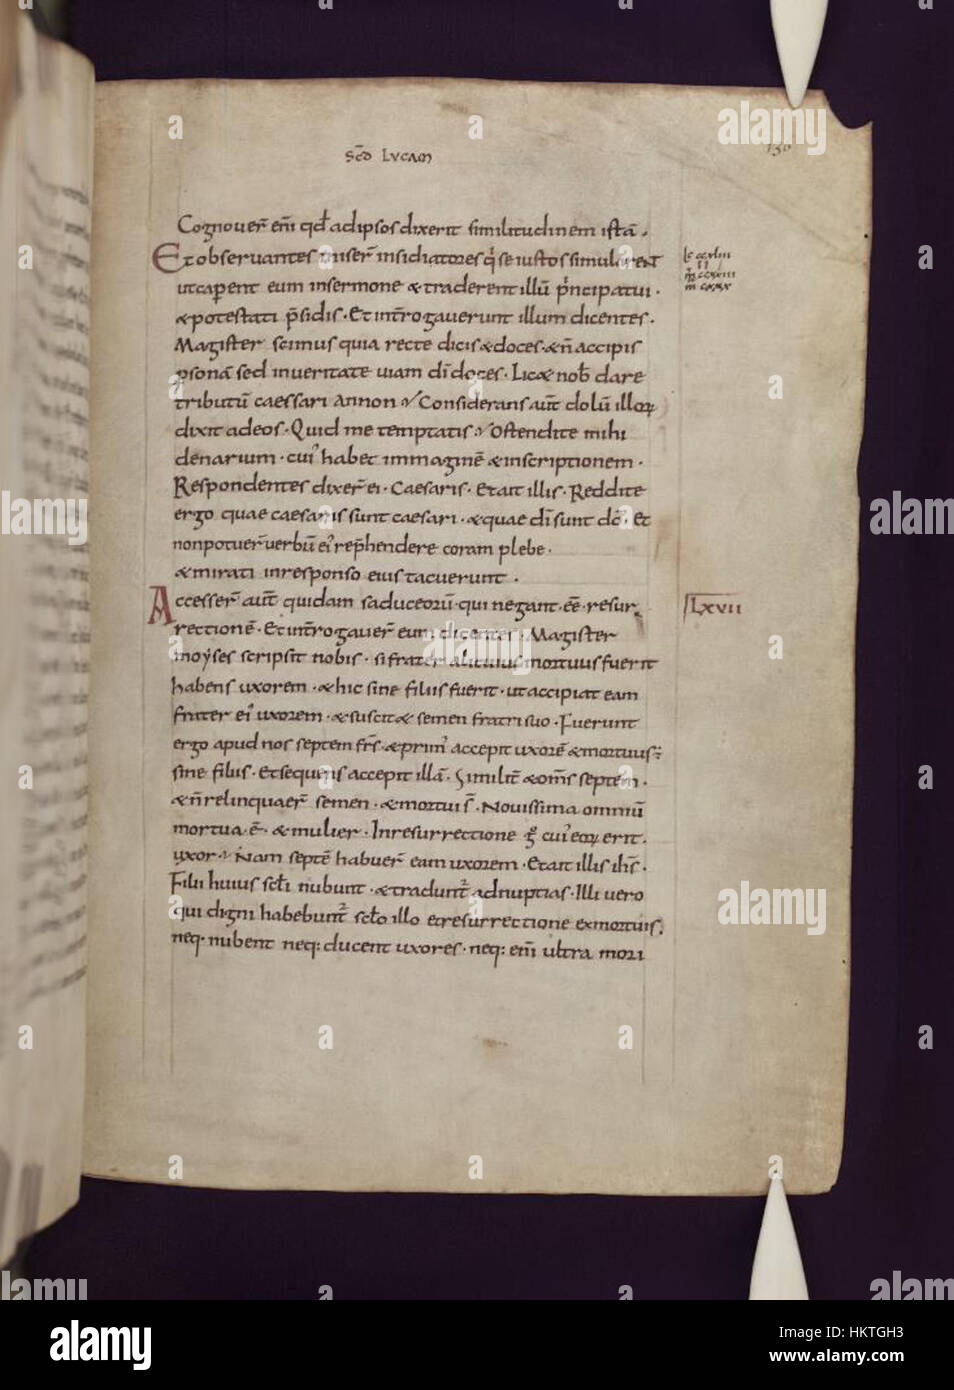 Scd̄ LVCAM
130
Cognouer̄ enī qd̄ adipsos dixerit similitudinem istā.
Et obseruantes miser̄ insidiatores qͥ se iustos simularent
lc ccxliii
utcaperent eum insermone &traderent illū pͥncipatui.
mͬ cxxx
&potestati p̄sidis. Et intr̄ogauerunt illum dicentes.
Magister scimus quia recte dicis &doces. &n̄ accipis
psonā sed inueritate uiam dī doces. Lic& nob̄ dare
tributū caessari annon? Considerans aut̄ dolū illoꝝ
dixit adeos. Quid me temptatis? Ostendite mihi
denarium. cuiꝰ habet immaginē &inscriptionem.
Respondentes dixer̄ ei. Caesaris. Etait illis. Reddite
ergo quae caesaris sunt caesari. &quae dī sunt dō. Et
nonpotuer̄ uerbū eiꝰ rep̄hendere coram plebe.
&mirati inresponso eius tacuerunt.
Accesser̄ aut̄ quidam saduceorū. qui negant. eē. resur
LXVII
rectionē. Et intr̄ogauer̄ eum dicentes. Magister
moẏses scripsit nobis. si frater alicuius mortuus fuerit
habens uxorem. &hic sine filiis fuerit. ut accipiat eam
frater eiꝰ uxorem. &suscit& semen fratri suo. Fuerunt
ergo apud nos septem fr̄s. &primꝰ accepit uxorē &mortuus:
sine filiis. Etsequens accepit illā. Similit̄ &om̄s septem.
&n̄ relinquaer̄ semen. &mortui s̄. Nouissima omniū
mortua. ē. &mulier. Inresurrectione gͦ cuiꝰ eoꝝ erit.
uxor? Nam septē habuer̄ eam uxorem. Etait illis ih̄s.
Filii huius sc̄li nubunt. &tradunt᷑ adnuptias. Illi uero
qui digni habebunt᷑ sc̄lo illo etresurrectione exmortuis.
neq. nubent neq: ducent uxores. neq: enī ultra mori
alamy
alamy
Image ID: HKTGH3
www.alamy.com